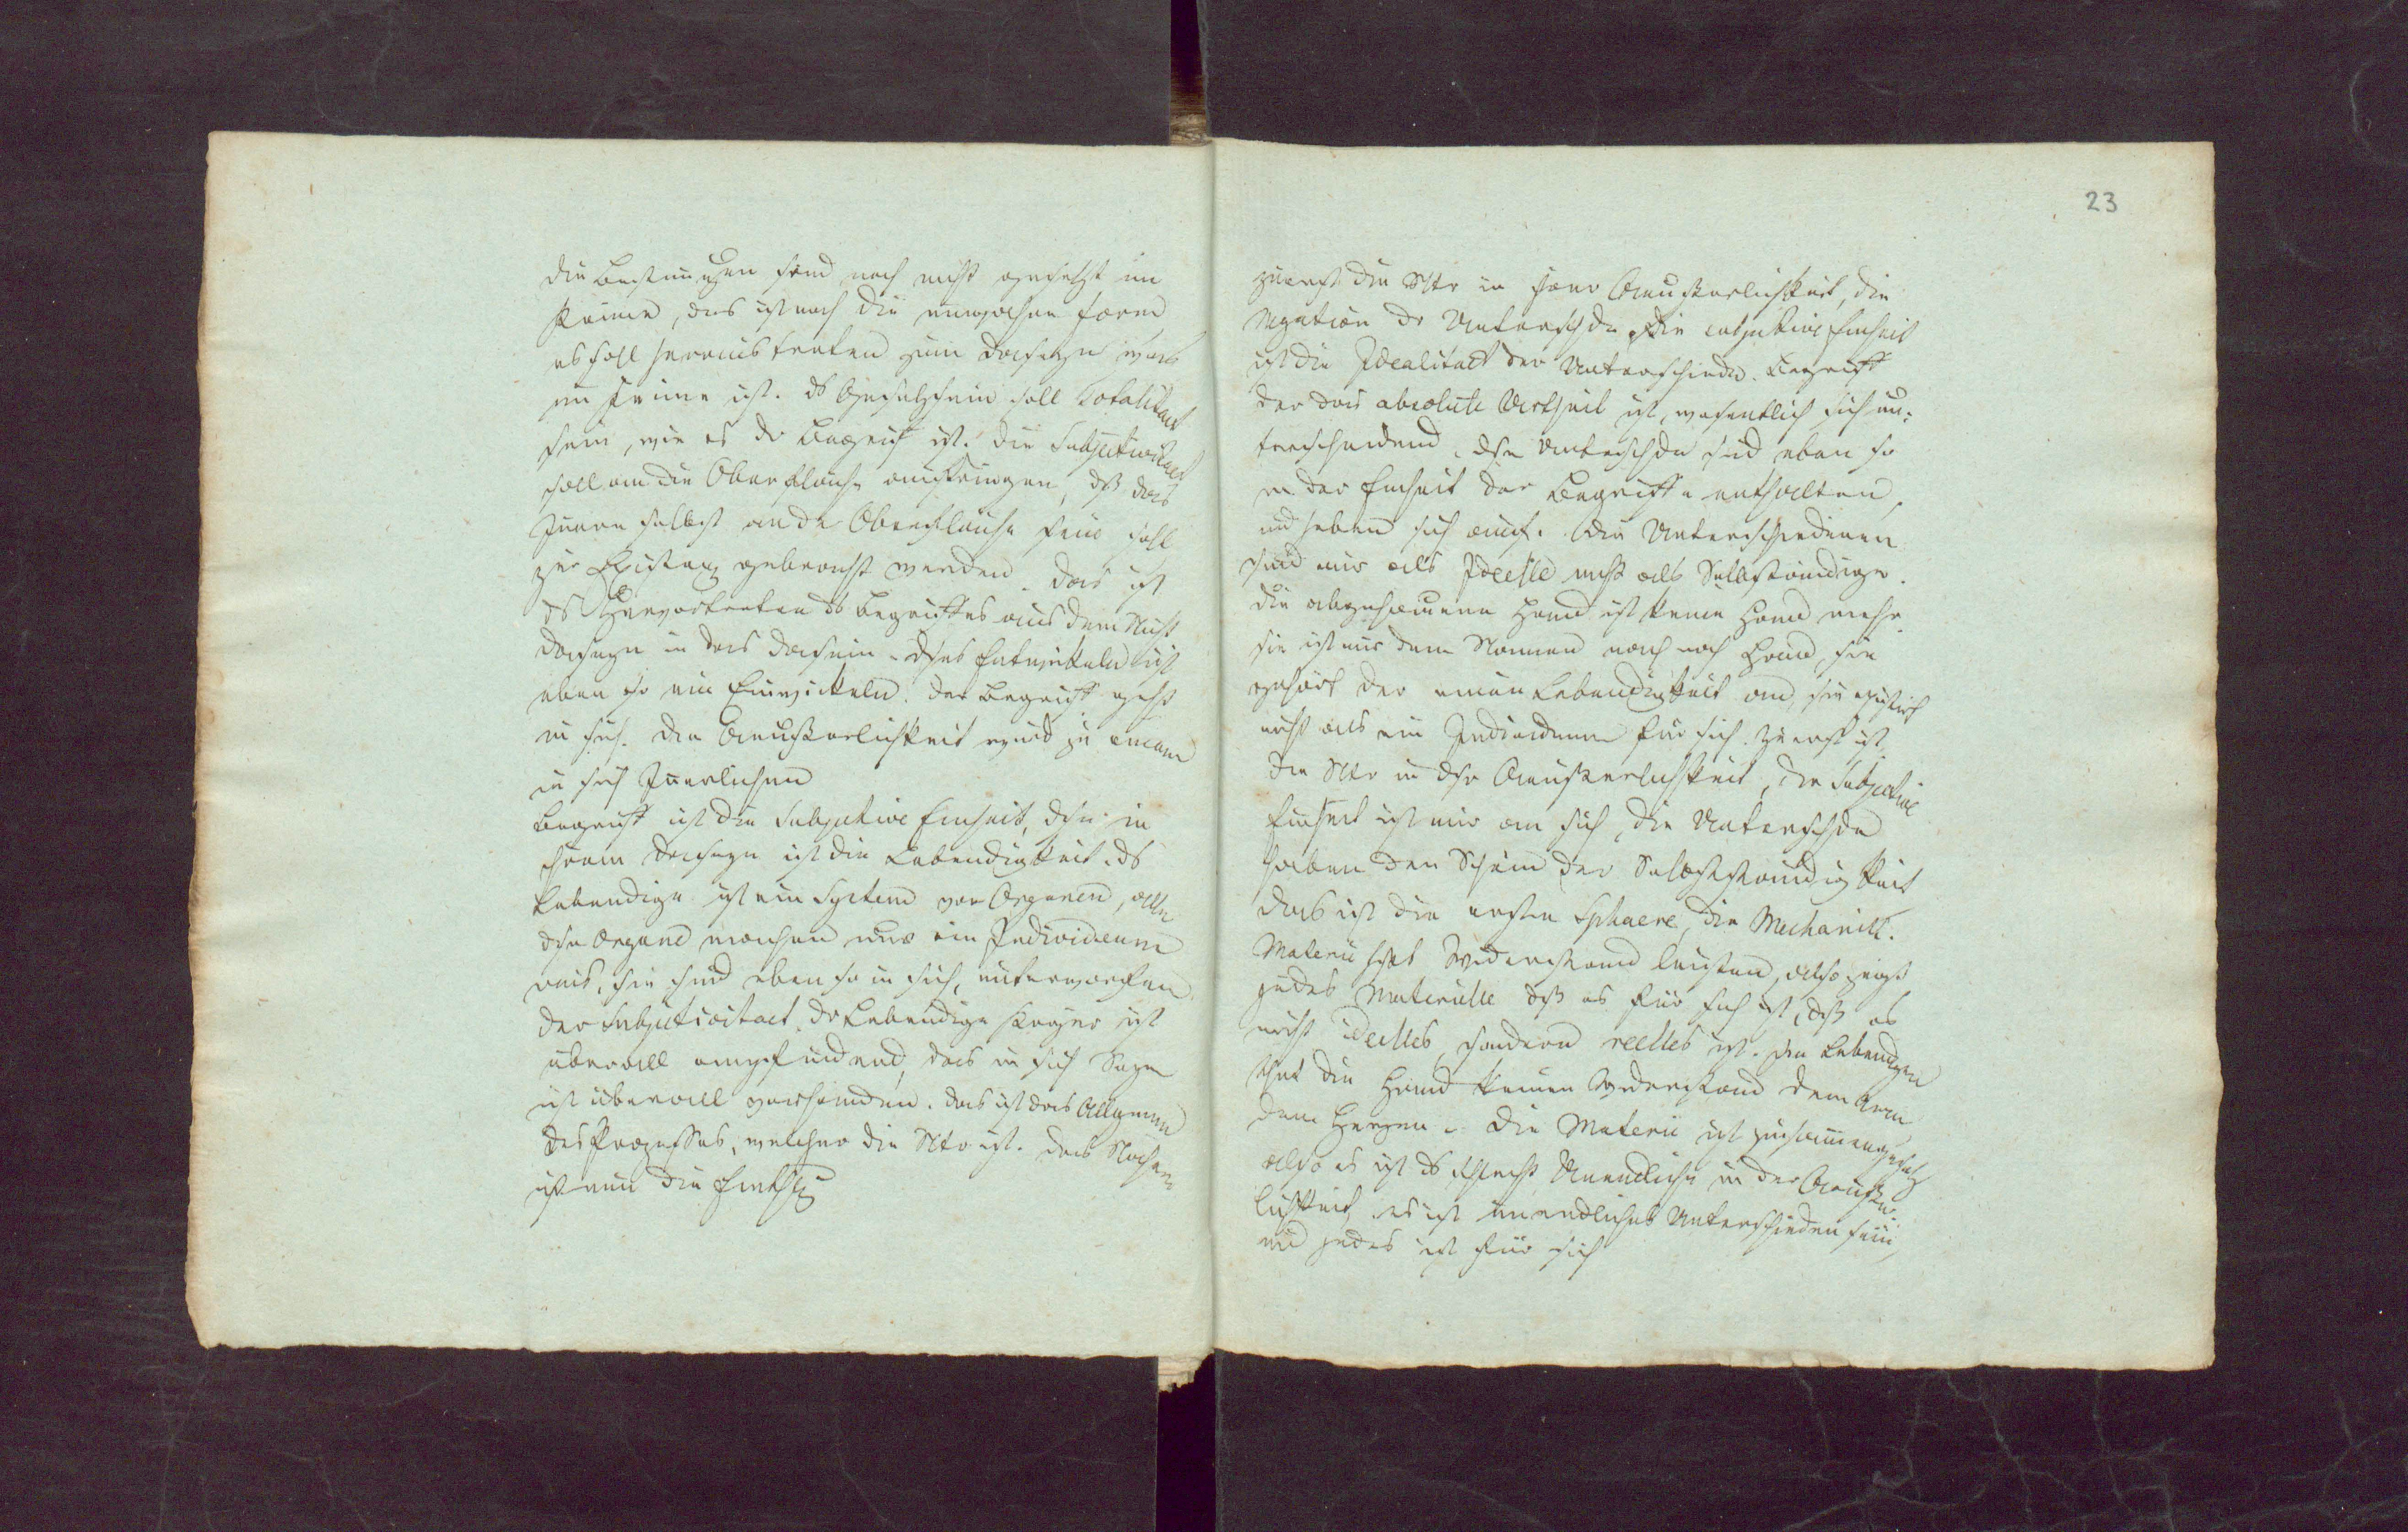 die Bestimungen sind noch nicht gesetzt im
Keime, das ist noch die einfache Form
es soll heraustreten zum Daseyn was
im Keime ist. ds Gesetzsein soll Totalitaet
sein, wie es der Begriff ist. Die Subjectivitaet
soll an die Oberflaeche ausdringen, dß das
Innere selbst an der Oberflaeche sein soll
zur Existenz gebracht werden. Das ist
ds Hervortreten ds Begriffes aus dem Nicht
daseyn in das Dasein. dses Entwickeln ist
eben so ein Einwickeln. der Begriff geht
in sich. Die Aeußerlichkeit wird zu einem
in sich Innerlichen
Begriff ist die subjective Einheit, dse in
ihrem Daseyn ist die Lebendigkeit. ds
Lebendige ist ein System von Organen, alle
dse Organe machen nur ein Individuum
aus, sie sind eben so in sich, unterworfen
der Subjectivitaet. Der lebendige Körper ist
überall empfindend, das in sich Seyn
ist überall vorhanden. das ist das Allgemeine
des Prozesses, welcher die Ntr ist. das Nähere
ist nun die Einthlg
23
zuerst die Ntr in ihrer Aeußerlichkeit, die
Negation der Unterschde die subjective Einheit
ist die Idealitaet der Unterschiede. Begriff
der das absolute Urtheil ist, wesentlich sich un-
terscheidend. dse Unterschde sind eben so
in der Einheit der Begriffe enthalten,
und heben sich auf. Die Unterschiedenen
sind nur als Ideelle nicht als Selbständige.
die abgehauene Hand ist keine Hand mehr.
sie ist nur dem Namen nach noch Hand, sie
gehört der einen Lebendigkeit an, sie existirt
nicht als ein Individuum für sich. Zuerst ist
die Ntr in dsr Aeußerlichkeit, die subjective
Einheit ist nur an sich, die Unterschde
haben den Schein der Selbstständigkeit
das ist die erste Sphaere, die Mechanik.
Materie hat Widerstand leisten, also zeigt
jedes Materielle dß es für sich ist, dß es
nicht ideelles sondern reelles ist. Im Lebendigen
thut die Hand keinen Widerstand dem Arm
dem Herzen. Die Materie ist zusammengesetzt
also es ist ds schlecht Unendliche in der Aeußer-
lichkeit, es ist unendliches Unterschieden sein,
und jedes ist für sich